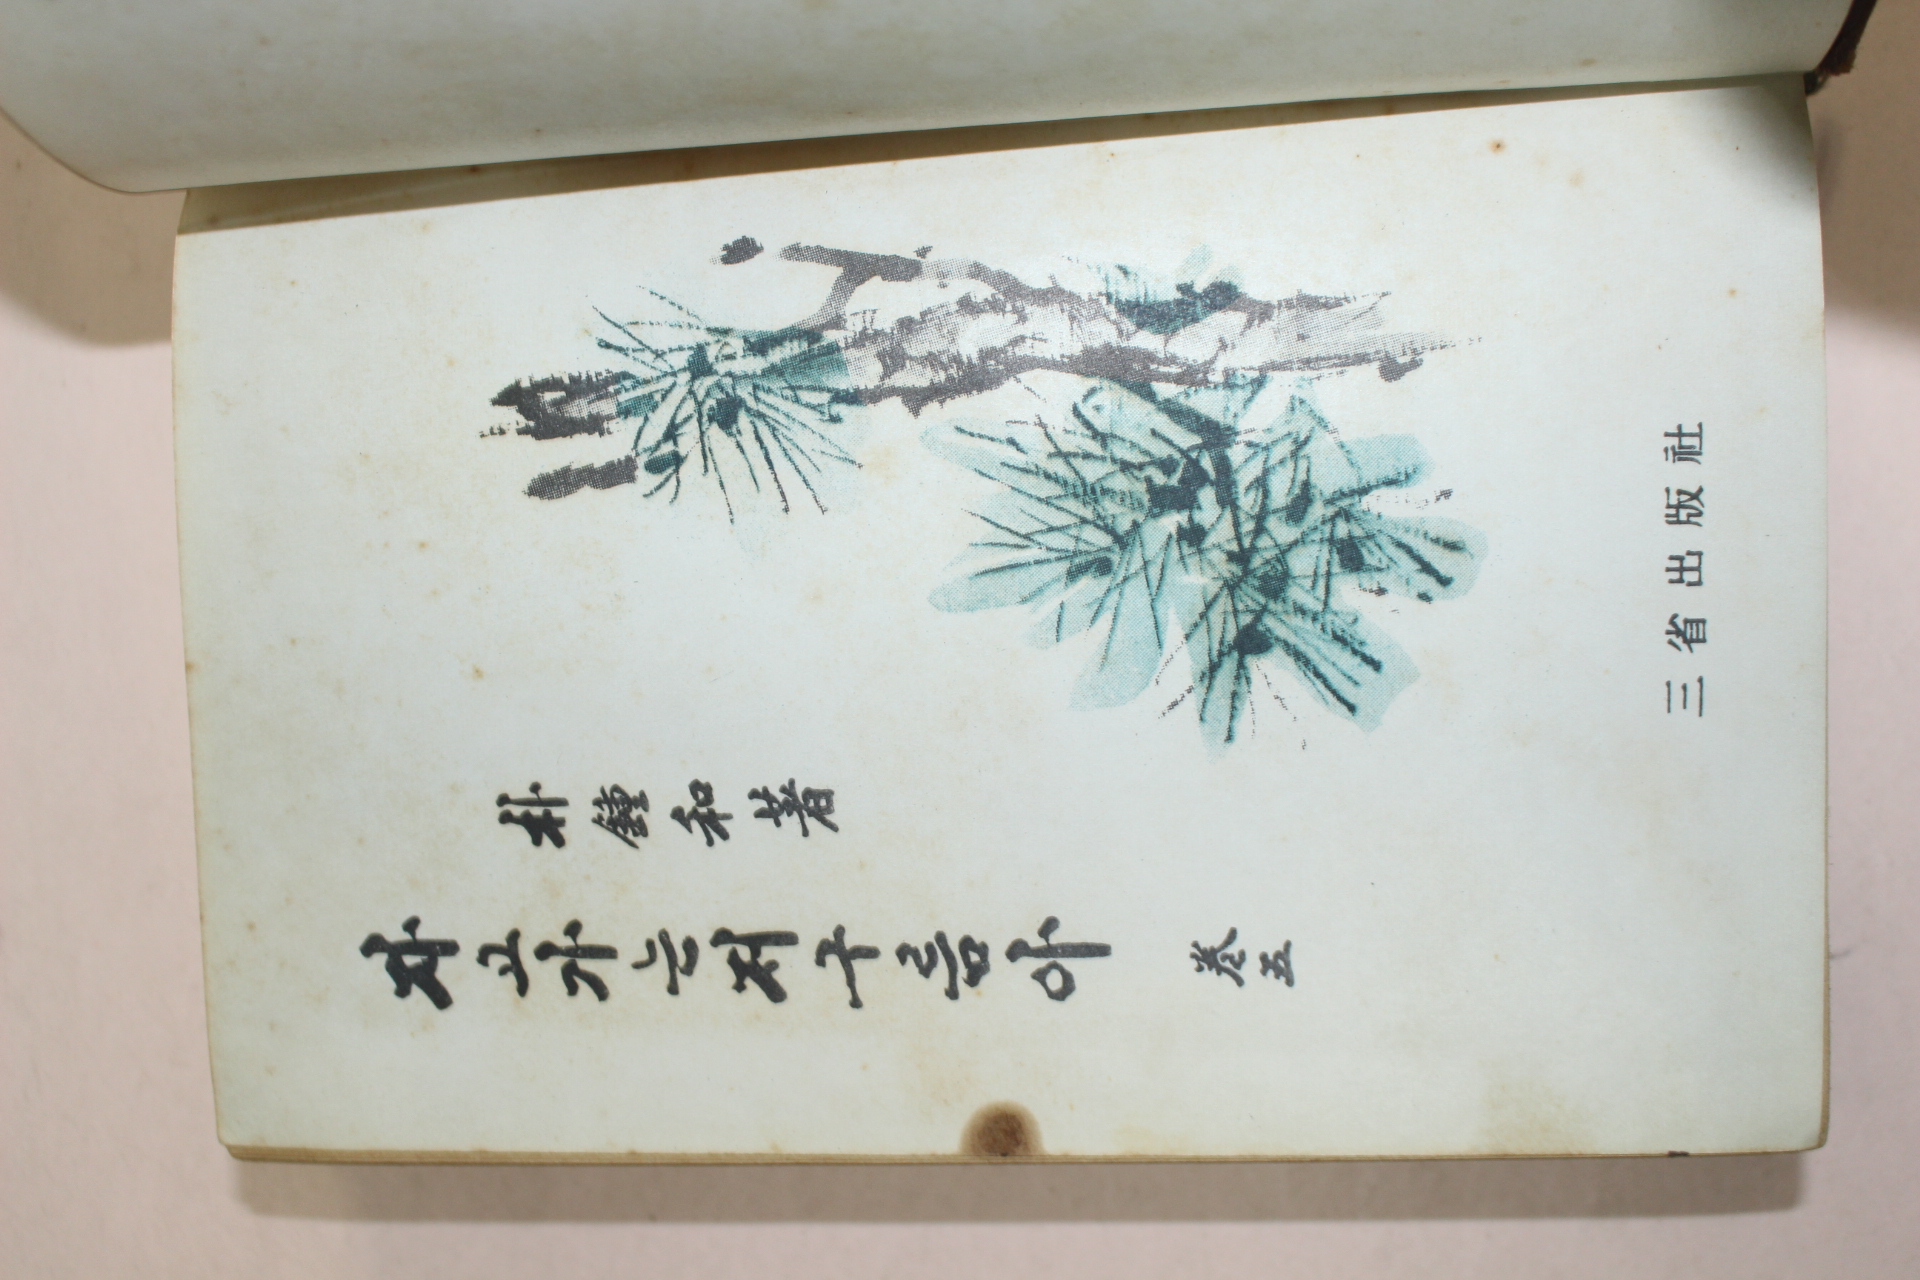 자고가는저구름아 卷五
朴鍾和 著
三省出版社